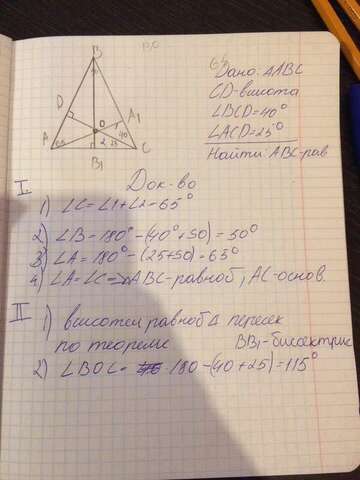 B
D
O
A₁
40
65
1
2
25
A
B₁
C
Дано: ΔABC
CD-висота
∠BCD=40°
∠ACD=25°
Найти: ABC-рав
Док-во
I
1) ∠C=∠1+∠2=65°
2) ∠B=180°-(40°+90)=50°
3) ∠A=180°-(25+90)=65°
4) ∠A=∠C=>ABC-равноб, AC-основ.
II
1) висотеи равноб Δ пересек
по теореме BB₁-биссектрис
2) ∠BOC= 180-(40+25)=115°